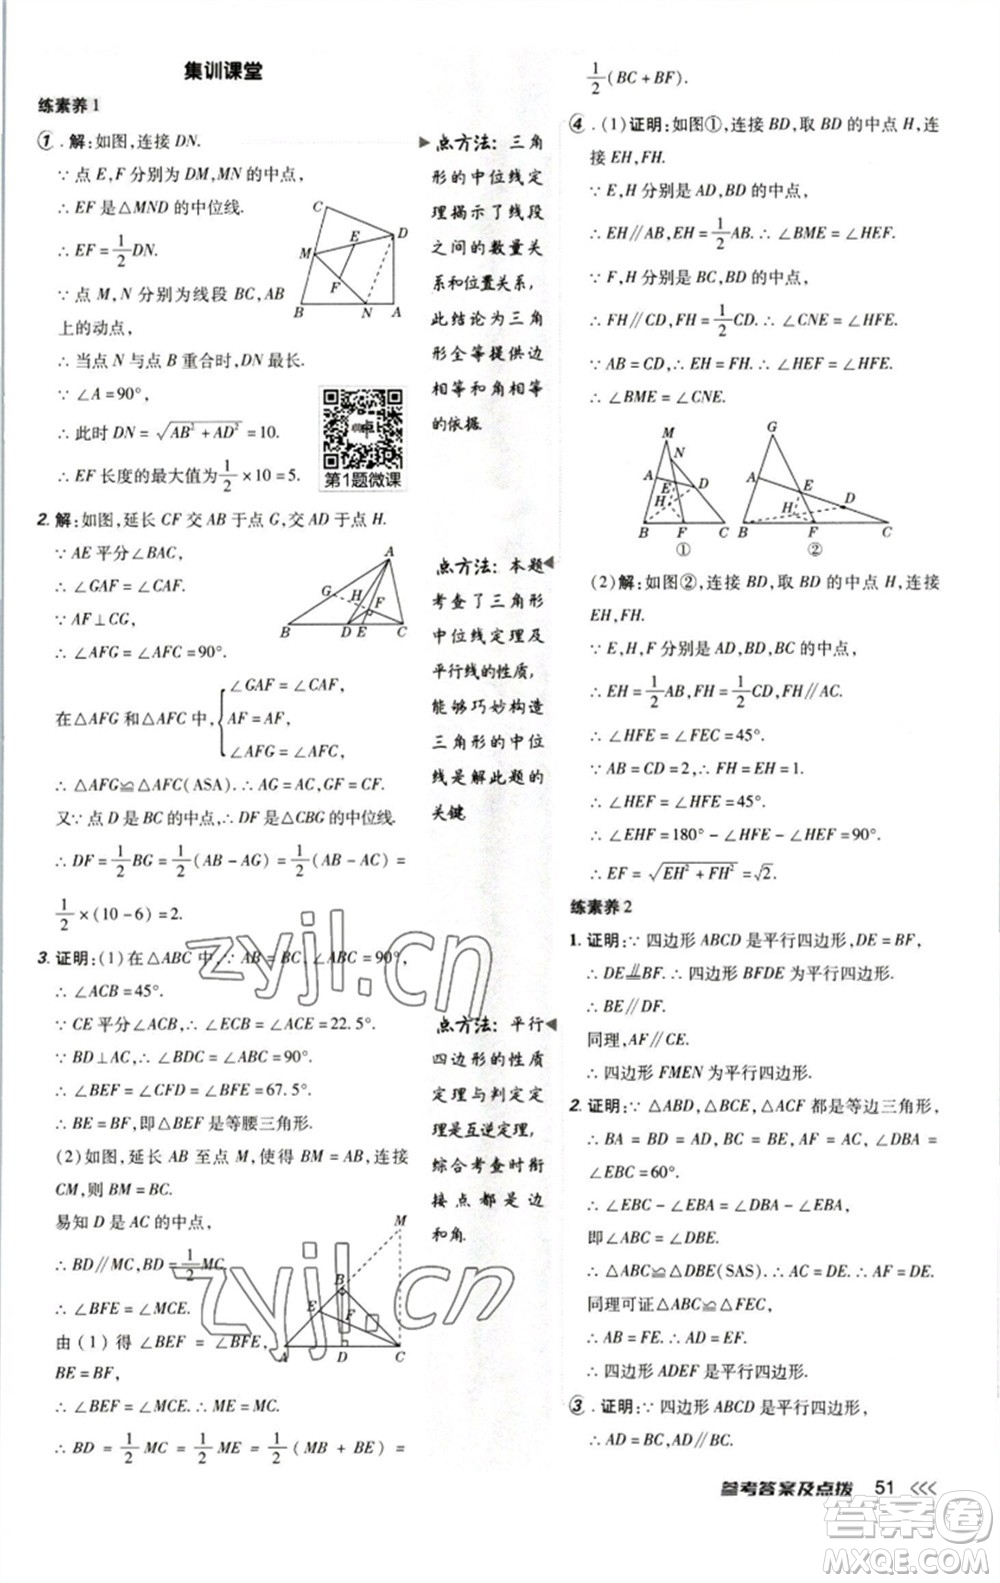 集训课堂
练素养1
1. 解:如图,连接DN.
∵点E,F分别为DM,MN的中点,
∴EF是△MND的中位线.
∴EF=1/2DN.
∵点M,N分别为线段BC,AB
上的动点,
∴当点N与点B重合时,DN最长.
∵∠A=90°,
∴此时DN=√(AB²+AD²)=10.
∴EF长度的最大值为1/2×10=5.
C
D
E
M
F
B N A
第1题微课
2. 解:如图,延长CF交AB于点G,交AD于点H.
∵AE平分∠BAC,
∴∠GAF=∠CAF.
∵AF⊥CG,
∴∠AFG=∠AFC=90°.
在△AFG和△AFC中,{∠GAF=∠CAF,
AF=AF,
∠AFG=∠AFC,
∴△AFG≌△AFC(ASA).∴AG=AC,GF=CF.
又∵点D是BC的中点,∴DF是△CBG的中位线.
∴DF=1/2BG=1/2(AB-AG)=1/2(AB-AC)=
1/2×(10-6)=2.
A
G H
F
B D E C
3. 证明:(1)在△ABC中,∵AB=BC,∠ABC=90°,
∴∠ACB=45°.
∵CE平分∠ACB,∴∠ECB=∠ACE=22.5°.
∵BD⊥AC,∴∠BDC=∠ADB=90°.
∴∠BEF=∠CFD=∠BFE=67.5°.
∴BE=BF,即△BEF是等腰三角形.
(2)如图,延长AB至点M,使得BM=AB,连接
CM,则BM=BC.
易知D是AC的中点,
∴BD∥MC,BD=1/2MC.
∴∠BFE=∠MCE.
由(1)得∠BEF=∠BFE,
BE=BF.
∴∠BEF=∠MCE.∴ME=MC.
∴BD=1/2MC=1/2ME=1/2(MB+BE)=
M
B
E
F
A D C
点方法:三角
形的中位线定
理揭示了线段
之间的数量关
系和位置关系,
此结论为三角
形全等提供边
相等和角相等
的依据.
点方法:本题
考查了三角形
中位线定理及
平行线的性质,
能够巧妙构造
三角形的中位
线是解此题的
关键.
点方法:平行
四边形的性质
定理与判定定
理是互逆定理,
综合考查时衔
接点都是边
和角.
1/2(BC+BF).
4. (1)证明:如图①,连接BD,取BD的中点H,连
接EH,FH.
∵E,H分别是AD,BD的中点,
∴EH∥AB,EH=1/2AB.∴∠BME=∠HEF.
∵F,H分别是BC,BD的中点,
∴FH∥CD,FH=1/2CD.∴∠CNE=∠HFE.
∵AB=CD,∴EH=FH.∴∠HEF=∠HFE.
∴∠BME=∠CNE.
M
N
A E D
H
B F C
①
G
A E
H D
B F C
②
(2)解:如图②,连接BD,取BD的中点H,连接
EH,FH.
∵E,H,F分别是AD,BD,BC的中点,
∴EH=1/2AB,FH=1/2CD,FH∥AC.
∴∠HFE=∠FEC=45°.
∵AB=CD=2,∴FH=EH=1.
∴∠HEF=∠HFE=45°.
∴∠EHF=180°-∠HFE-∠HEF=90°.
∴EF=√(EH²+FH²)=√2.
练素养2
1. 证明:∵四边形ABCD是平行四边形,DE=BF,
∴DE∥BF.∴四边形BFDE为平行四边形.
∴BE∥DF.
同理,AF∥CE.
∴四边形FMEN为平行四边形.
2. 证明:∵△ABD,△BCE,△ACF都是等边三角形,
∴BA=BD,BC=BE,AC=AF,∠DBA=
∠EBC=60°.
∴∠EBC-∠EBA=∠DBA-∠EBA,
即∠ABC=∠DBE.
∴△ABC≌△DBE(SAS).∴AC=DE.∴AF=DE.
同理可证△ABC≌△FEC,
∴AB=FE.∴AD=FE.
∴四边形ADEF是平行四边形.
3. 证明:∵四边形ABCD是平行四边形,
∴AD=BC,AD∥BC.
参考答案及点拨 51
zyjl.cn
zyjl.cn
答案圈
MXQE.COM